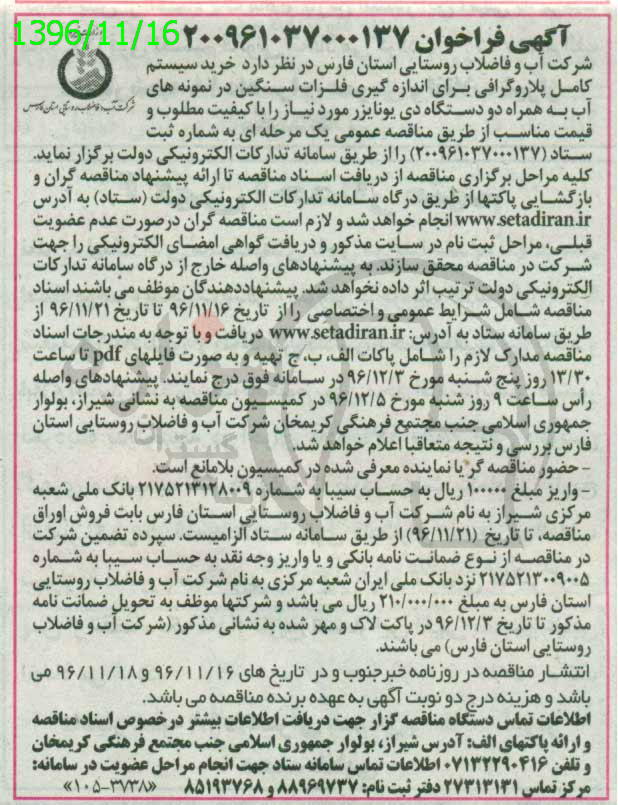 1396/11/16
آگهی فراخوان ۲۰۰۹۶۱۰۳۷۰۰۰۱۳۷
شرکت آب و فاضلاب روستایی استان فارس
شرکت آب و فاضلاب روستایی استان فارس در نظر دارد خرید سیستم
کامل پلاروگرافی برای اندازه گیری فلزات سنگین در نمونه های
آب به همراه دو دستگاه دی یونایزر مورد نیاز را با کیفیت مطلوب و
قیمت مناسب از طریق مناقصه عمومی یک مرحله ای به شماره ثبت
ستاد (۲۰۰۹۶۱۰۳۷۰۰۰۱۳۷) را از طریق سامانه تدارکات الکترونیکی دولت برگزار نماید.
کلیه مراحل برگزاری مناقصه از دریافت اسناد مناقصه تا ارائه پیشنهاد مناقصه گران و
بازگشایی پاکتها از طریق درگاه سامانه تدارکات الکترونیکی دولت (ستاد) به آدرس
www.setadiran.ir انجام خواهد شد و لازم است مناقصه گران درصورت عدم عضویت
قبلی، مراحل ثبت نام در سایت مذکور و دریافت گواهی امضای الکترونیکی را جهت
شرکت در مناقصه محقق سازند. به پیشنهادهای واصله خارج از درگاه سامانه تدارکات
الکترونیکی دولت ترتیب اثر داده نخواهد شد. پیشنهاددهندگان موظف می باشند اسناد
مناقصه شامل شرایط عمومی و اختصاصی را از تاریخ ۹۶/۱۱/۱۶ تا تاریخ ۹۶/۱۱/۲۱ از
طریق سامانه ستاد به آدرس: www.setadiran.ir دریافت و با توجه به مندرجات اسناد
مناقصه مدارک لازم را شامل پاکات الف، ب، ج تهیه و به صورت فایلهای pdf تا ساعت
۱۳/۳۰ روز پنج شنبه مورخ ۹۶/۱۲/۳ در سامانه فوق درج نمایند. پیشنهادهای واصله
رأس ساعت ۹ روز شنبه مورخ ۹۶/۱۲/۵ در کمیسیون مناقصه به نشانی شیراز، بولوار
جمهوری اسلامی جنب مجتمع فرهنگی کریمخان شرکت آب و فاضلاب روستایی استان
فارس بررسی و نتیجه متعاقبا اعلام خواهد شد.
- حضور مناقصه گر یا نماینده معرفی شده در کمیسیون بلامانع است.
- واریز مبلغ ۱۰۰۰۰۰ ریال به حساب سیبا به شماره ۲۱۷۵۲۱۳۱۲۸۰۰۹ بانک ملی شعبه
مرکزی شیراز به نام شرکت آب و فاضلاب روستایی استان فارس بابت فروش اوراق
مناقصه، تا تاریخ (۹۶/۱۱/۲۱) از طریق سامانه ستاد الزامیست. سپرده تضمین شرکت
در مناقصه از نوع ضمانت نامه بانکی و یا واریز وجه نقد به حساب سیبا به شماره
۲۱۷۵۲۱۳۰۰۹۰۰۵ نزد بانک ملی ایران شعبه مرکزی به نام شرکت آب و فاضلاب روستایی
استان فارس به مبلغ ۲۱۰/۰۰۰/۰۰۰ ریال می باشد و شرکتها موظف به تحویل ضمانت نامه
مذکور تا تاریخ ۹۶/۱۲/۳ در پاکت لاک و مهر شده به نشانی مذکور (شرکت آب و فاضلاب
روستایی استان فارس) می باشند.
انتشار مناقصه در روزنامه خبرجنوب و در تاریخ های ۹۶/۱۱/۱۶ و ۹۶/۱۱/۱۸ می
باشد و هزینه درج دو نوبت آگهی به عهده برنده مناقصه می باشد.
اطلاعات تماس دستگاه مناقصه گزار جهت دریافت اطلاعات بیشتر در خصوص اسناد مناقصه
و ارائه پاکتهای الف: آدرس شیراز، بولوار جمهوری اسلامی جنب مجتمع فرهنگی کریمخان
و تلفن ۰۷۱۳۲۲۹۰۴۱۶ اطلاعات تماس سامانه ستاد جهت انجام مراحل عضویت در سامانه:
مرکز تماس ۲۷۳۱۳۱۳۱ دفتر ثبت نام: ۸۸۹۶۹۷۳۷ و ۸۵۱۹۳۷۶۸ «۱۰۵-۳۷۳۸»